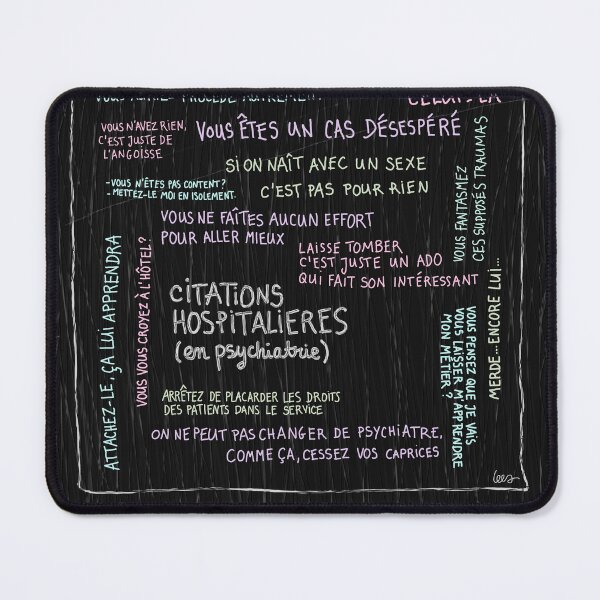 VOUS N'AVEZ RIEN,
C'EST JUSTE DE
L'ANGOISSE
VOUS ÊTES UN CAS DÉSESPÉRÉ
SI ON NAÎT AVEC UN SEXE
C'EST PAS POUR RIEN
-VOUS N'ÊTES PAS CONTENT?
-METTEZ-LE MOI EN ISOLEMENT.
VOUS FANTASMEZ
CES SUPPOSÉS TRAUMAS
VOUS NE FAÎTES AUCUN EFFORT
POUR ALLER MIEUX
LAISSE TOMBER
C'EST JUSTE UN ADO
QUI FAIT SON INTÉRESSANT
ATTACHEZ-LE, ÇA LUI APPRENDRA
VOUS VOUS CROYEZ À L'HÔTEL?
CITATIONS
HOSPITALIERES
(en psychiatrie)
MERDE... ENCORE LUI...
VOUS PENSEZ QUE JE VAIS
VOUS LAISSER M'APPRENDRE
MON MÉTIER ?
ARRÊTEZ DE PLACARDER LES DROITS
DES PATIENTS DANS LE SERVICE
ON NE PEUT PAS CHANGER DE PSYCHIATRE,
COMME ÇA, CESSEZ VOS CAPRICES